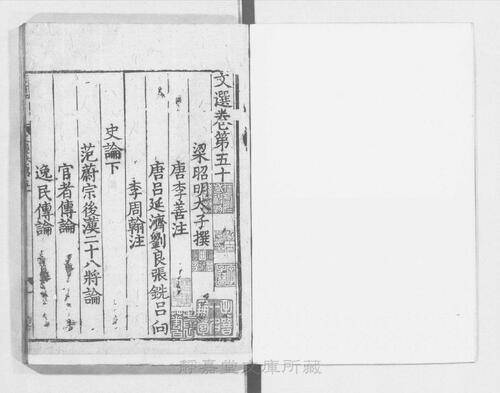 文選卷第五十
梁昭明太子撰
唐李善注
唐呂延濟劉良張銑呂向
李周翰注
史論下
范蔚宗後漢二十八將論
宦者傳論
逸民傳論
靜嘉堂文庫所藏